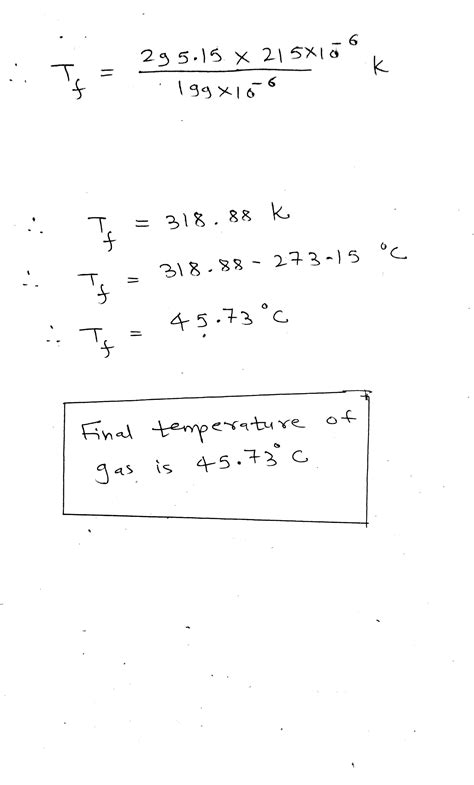 ∴ T_f = 295.15 × 215×10^-6 / 199×10^-6 k
∴ T_f = 318.88 k
∴ T_f = 318.88 - 273.15 °C
∴ T_f = 45.73 °C
Final temperature of
gas is 45.73° C